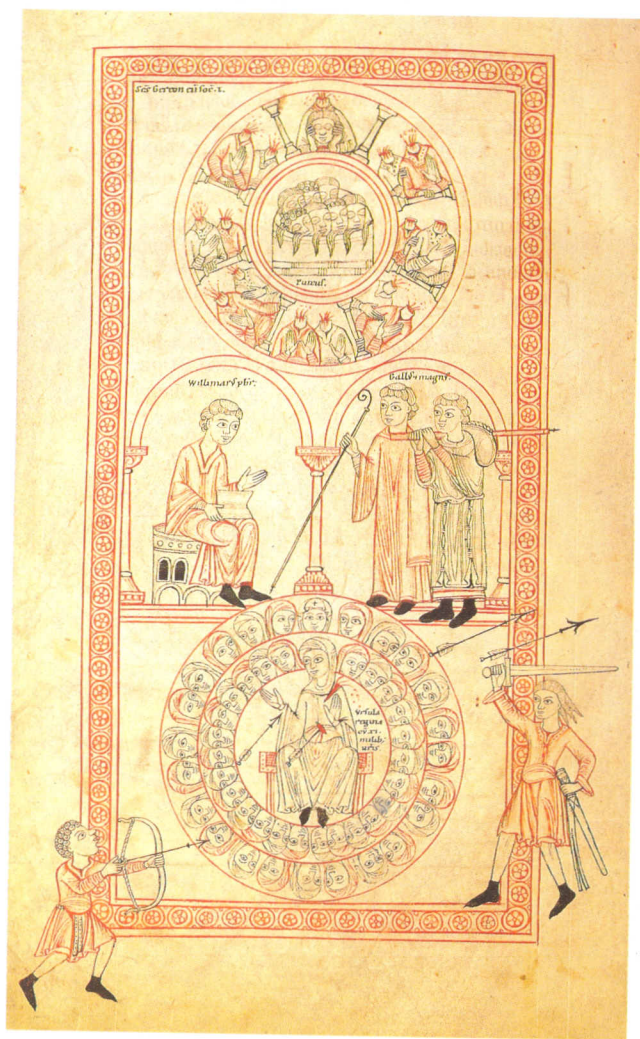 Scs Gereon cū soc. s.
puteus.
Willimarꝰ pbr:
Gallꝰ magnꝰ:
Vrsula
regina
cū. xi.
milib;